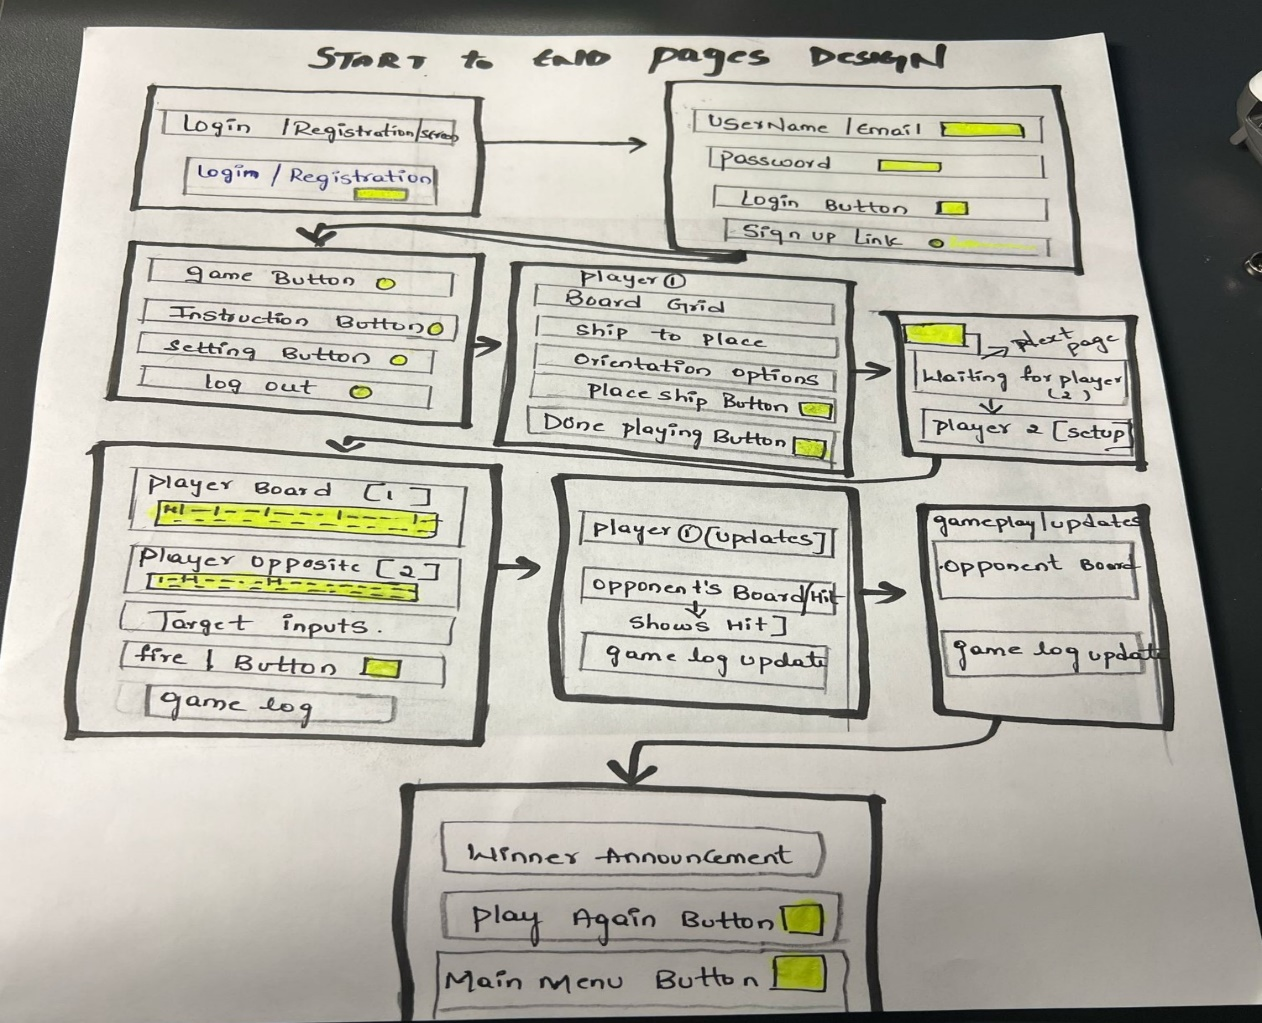 START to END pages DESIGN
Login / Registration/screen
Login / Registration
UserName / Email
Password
Login Button
Sign up Link
game Button
Instruction Button
Setting Button
Log out
player ①
Board Grid
ship to place
Orientation options
place ship Button
Done playing Button
page
Waiting for player
(2)
player 2 [setup]
player Board [1]
Player opposite [2]
Target inputs.
fire | Button
game log
player ① [updates]
opponent's Board/Hit
shows Hit]
game log update
gameplay/updates
.opponent Board
game log update
Winner Announcement
play Again Button
Main Menu Button